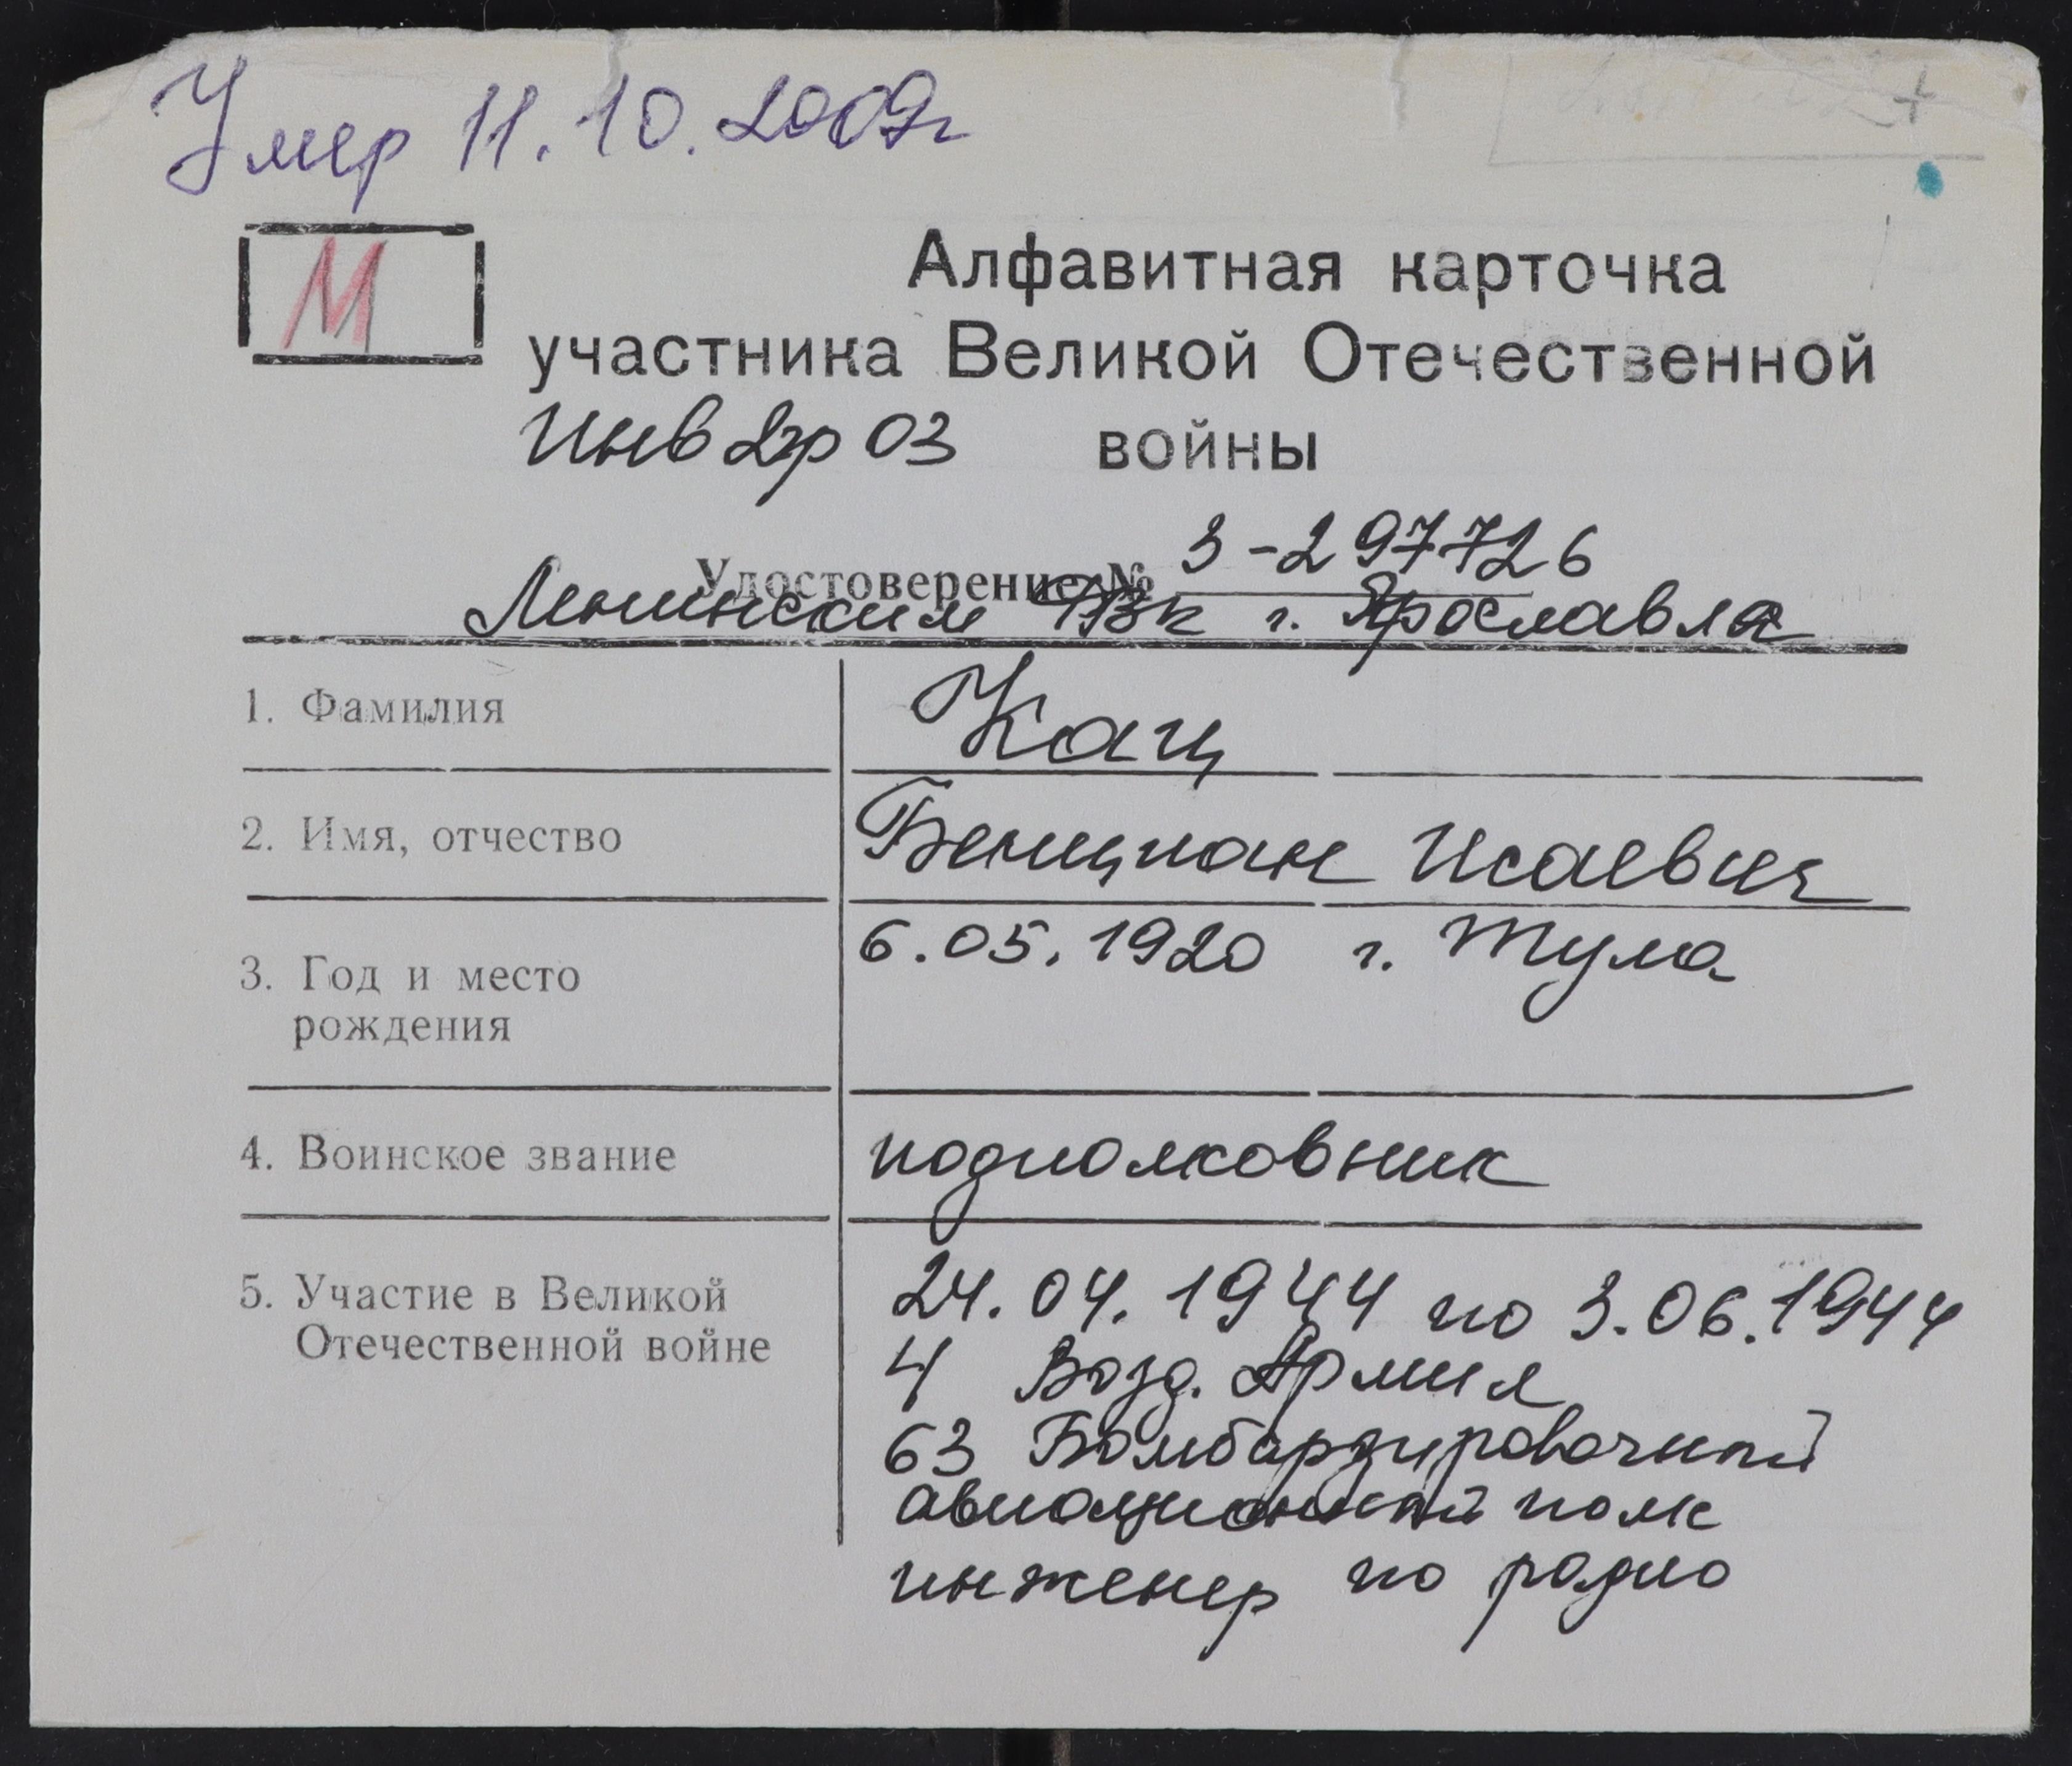 Умер 11.10.2009г
М
Алфавитная карточка
участника Великой Отечественной
Инв 2гр 03 войны
Удостоверение № 3-297726
Ленинским РВк г. Ярославля
1. Фамилия Кац
2. Имя, отчество Бенциан Исаевич
3. Год и место 6.05.1920 г. Тула
рождения
4. Воинское звание подполковник
5. Участие в Великой 24.04.1944 по 3.06.1944
Отечественной войне 4 Возд. Армия
63 Бомбардировочный
авиационный полк
инженер по радио